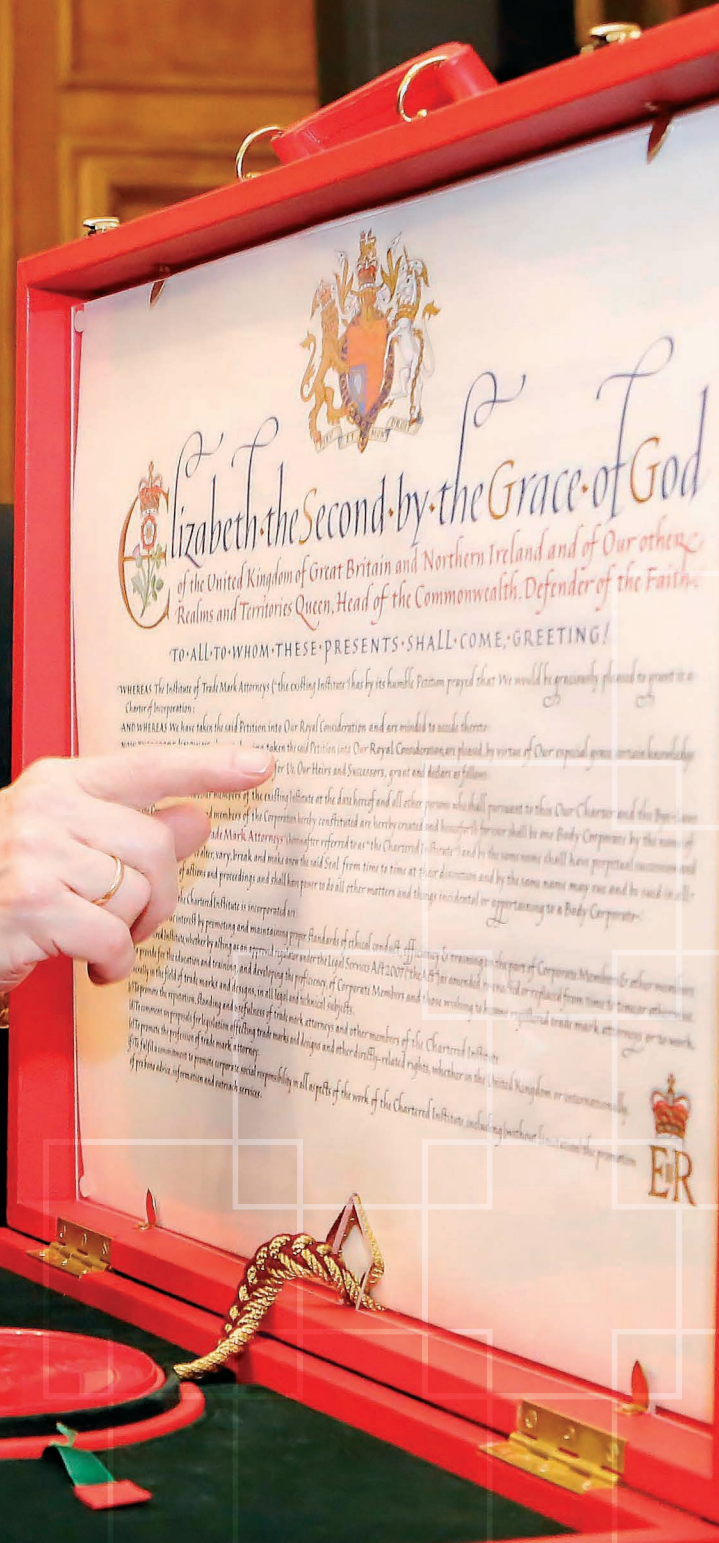 Elizabeth·the·Second·by·the·Grace·of·God
of the United Kingdom of Great Britain and Northern Ireland and of Our other
Realms and Territories Queen, Head of the Commonwealth, Defender of the Faith
TO·ALL·TO·WHOM·THESE·PRESENTS·SHALL·COME,·GREETING!
WHEREAS The Institute of Trade Mark Attorneys ("the existing Institute") has by its humble Petition prayed that We would be graciously pleased to grant it a
Charter of Incorporation:
AND WHEREAS We have taken the said Petition into Our Royal Consideration and are minded to accede thereto:
taken the said Petition into Our Royal Consideration, are pleased, by virtue of Our especial grace certain knowledge
for Us, Our Heirs and Successors, grant and declare as follows:
members of the existing Institute at the date hereof and all other persons who shall pursuant to this Our Charter and the Bye-Laws
members of the Corporation hereby constituted are hereby created and henceforth for ever shall be one Body Corporate by the name of
Trade Mark Attorneys" (hereinafter referred to as "the Chartered Institute") and by the same name shall have perpetual succession and
alter, vary, break and make anew the said Seal from time to time at their discretion and by the same name may sue and be sued in all
of actions and proceedings and shall have power to do all other matters and things incidental or appertaining to a Body Corporate.
the Chartered Institute is incorporated are:
interest by promoting and maintaining proper standards of ethical conduct, efficiency & training on the part of Corporate Members & other members
Institute, whether by acting as an approved regulator under the Legal Services Act 2007 ("the Act") as amended, or replaced from time to time or otherwise
provide for the education and training, and developing the proficiency, of Corporate Members and those wishing to become registered trade mark attorneys or to work
in the field of trade marks and designs, in all legal and technical subjects.
To promote the reputation, standing and usefulness of trade mark attorneys and other members of the Chartered Institute.
To comment on proposals for legislation affecting trade marks and designs and other directly-related rights, whether in the United Kingdom or internationally.
To promote the profession of trade mark attorney.
To fulfil a commitment to promote corporate social responsibility in all aspects of the work of the Chartered Institute including (without limitation) the promotion
of pro bono advice, information and outreach services.
EIIR